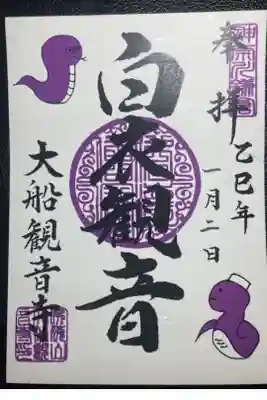 奉拝
乙巳年
一月二日
白衣観音
大船観音寺